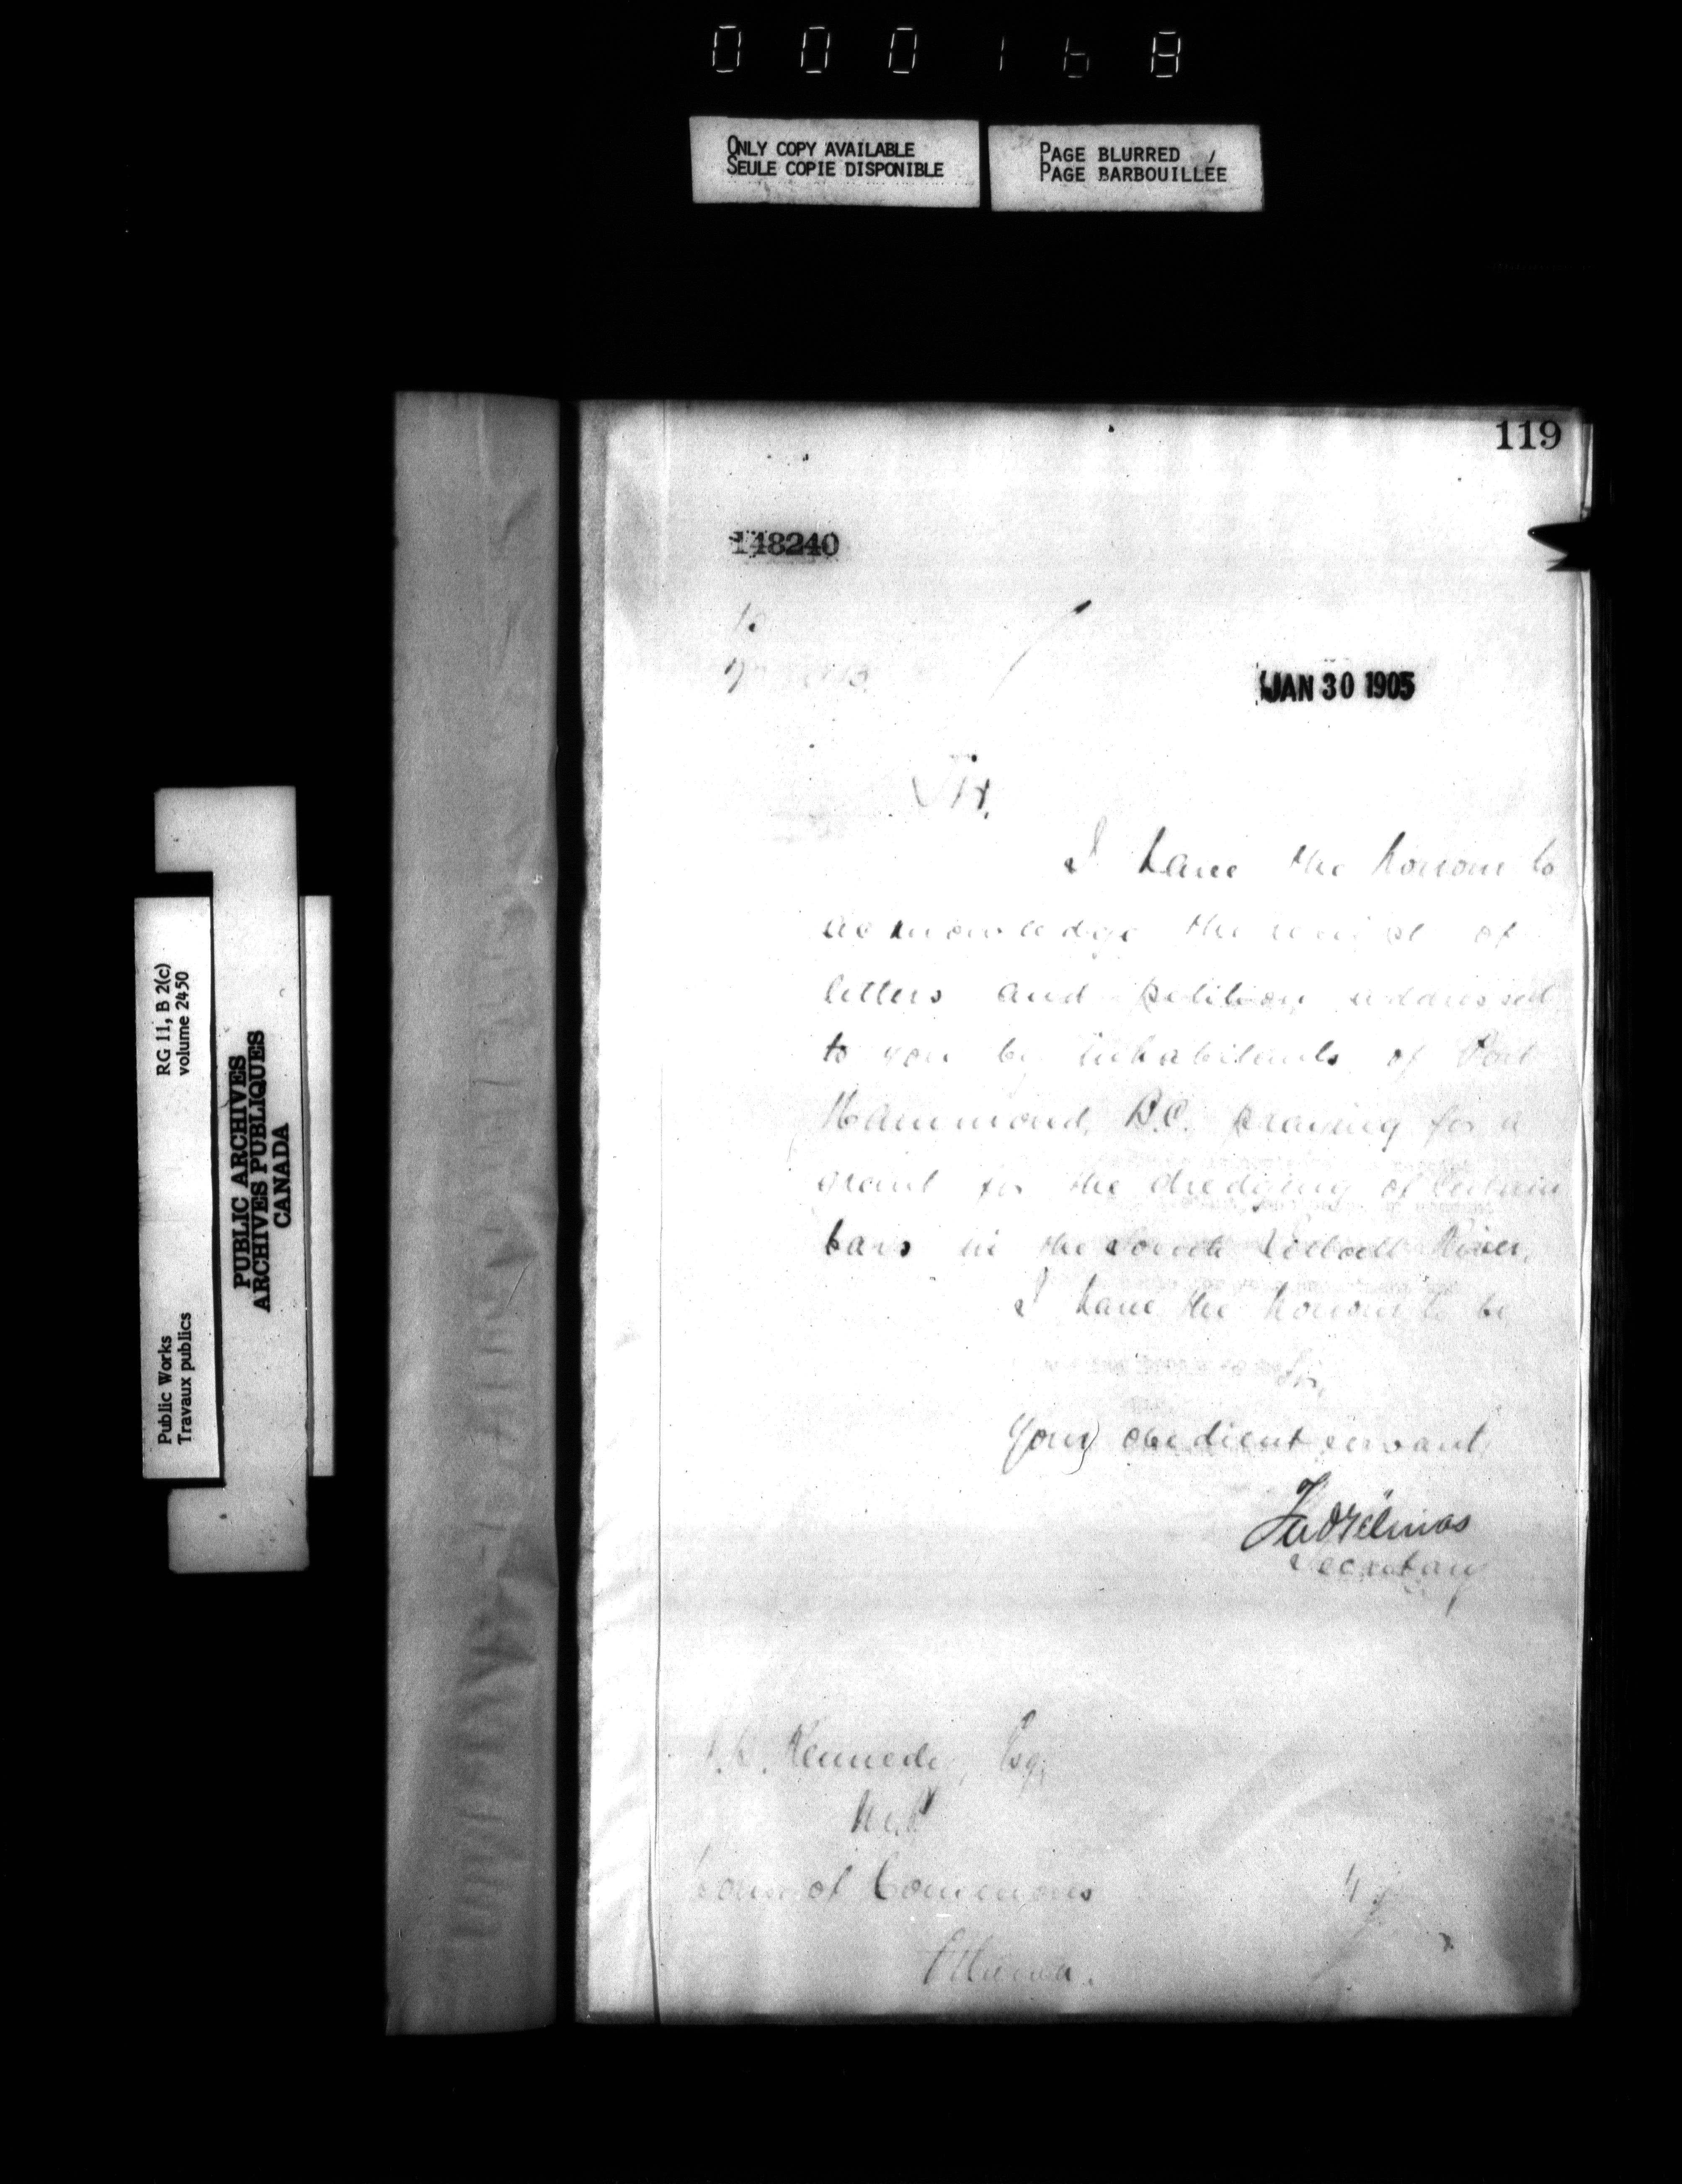 000168
ONLY COPY AVAILABLE
SEULE COPIE DISPONIBLE
PAGE BLURRED
PAGE BARBOUILLEE
119
148240
JAN 30 1905
Sir,
I have the honour to
acknowledge the receipt of
letters and petition addressed
to you by inhabitants of Port
Hammond, B.C. praying for a
grant for the dredging of certain
bars in the South Lillooet River.
I have the honour to be
Sir,
Your obedient servant
Fred Gélinas
Secretary
Kennedy, Esq;
M.P
House of Commons
Ottawa.
Public Works
Travaux publics
RG 11, B 2(c)
volume 2450
PUBLIC ARCHIVES
ARCHIVES PUBLIQUES
CANADA